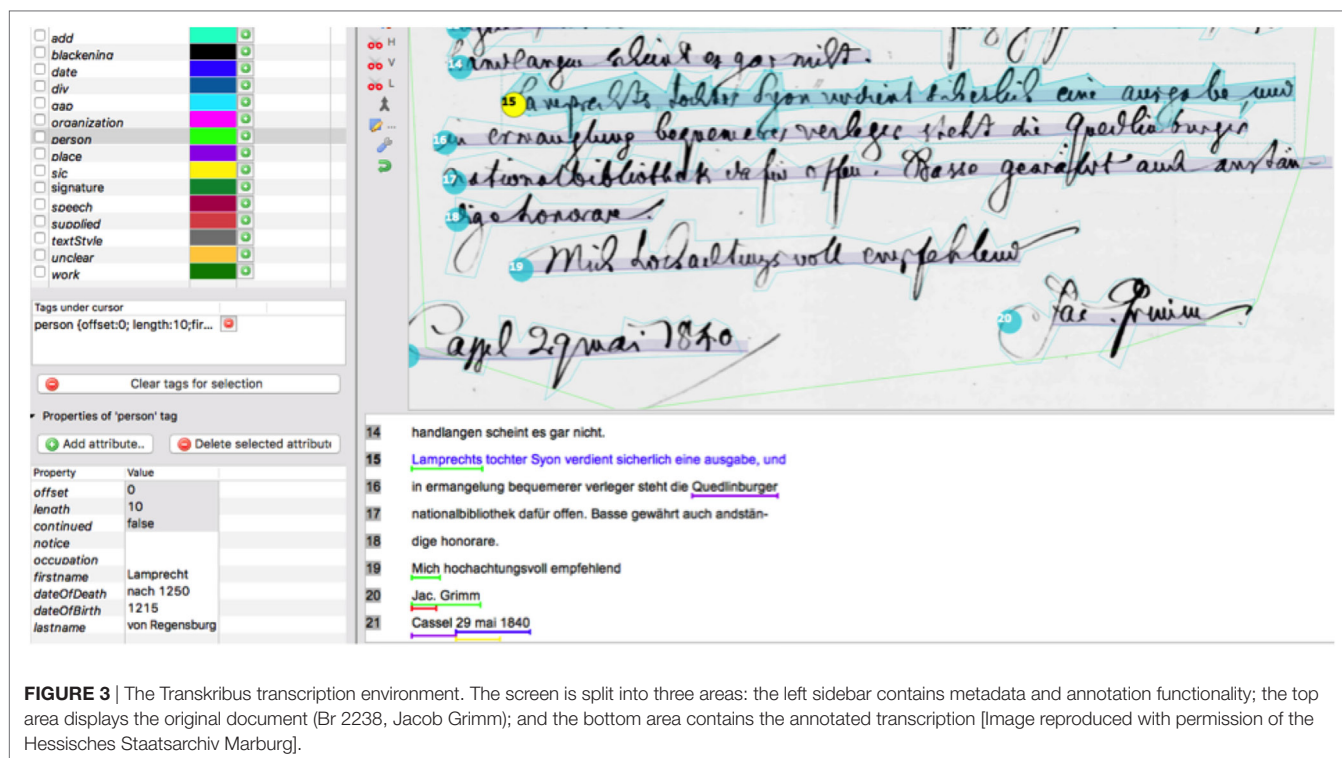 add
blackening
date
div
gap
organization
person
place
sic
signature
speech
supplied
textStyle
unclear
work
Tags under cursor
person {offset:0; length:10;fir...
Clear tags for selection
Properties of 'person' tag
Add attribute..
Delete selected attribut
Property Value
offset 0
length 10
continued false
notice
occupation
firstname Lamprecht
dateOfDeath nach 1250
dateOfBirth 1215
lastname von Regensburg
H
V
L
...
14 handlangen scheint es gar nicht.
15 Lamprechts tochter Syon verdient sicherlich eine ausgabe, und
16 in ermanglung bequemerer verleger steht die Quedlinburger
17 nationalbibliothek dafür offen. Basse gewährt auch anstän-
18 dige honorare.
19 Mich hochachtungsvoll empfehlend
20 Jac. Grimm
Cassel 29 mai 1840
14 handlangen scheint es gar nicht.
15 Lamprechts tochter Syon verdient sicherlich eine ausgabe, und
16 in ermangelung bequemerer verleger steht die Quedlinburger
17 nationalbibliothek dafür offen. Basse gewährt auch andstän-
18 dige honorare.
19 Mich hochachtungsvoll empfehlend
20 Jac. Grimm
21 Cassel 29 mai 1840
FIGURE 3 | The Transkribus transcription environment. The screen is split into three areas: the left sidebar contains metadata and annotation functionality; the top
area displays the original document (Br 2238, Jacob Grimm); and the bottom area contains the annotated transcription [Image reproduced with permission of the
Hessisches Staatsarchiv Marburg].